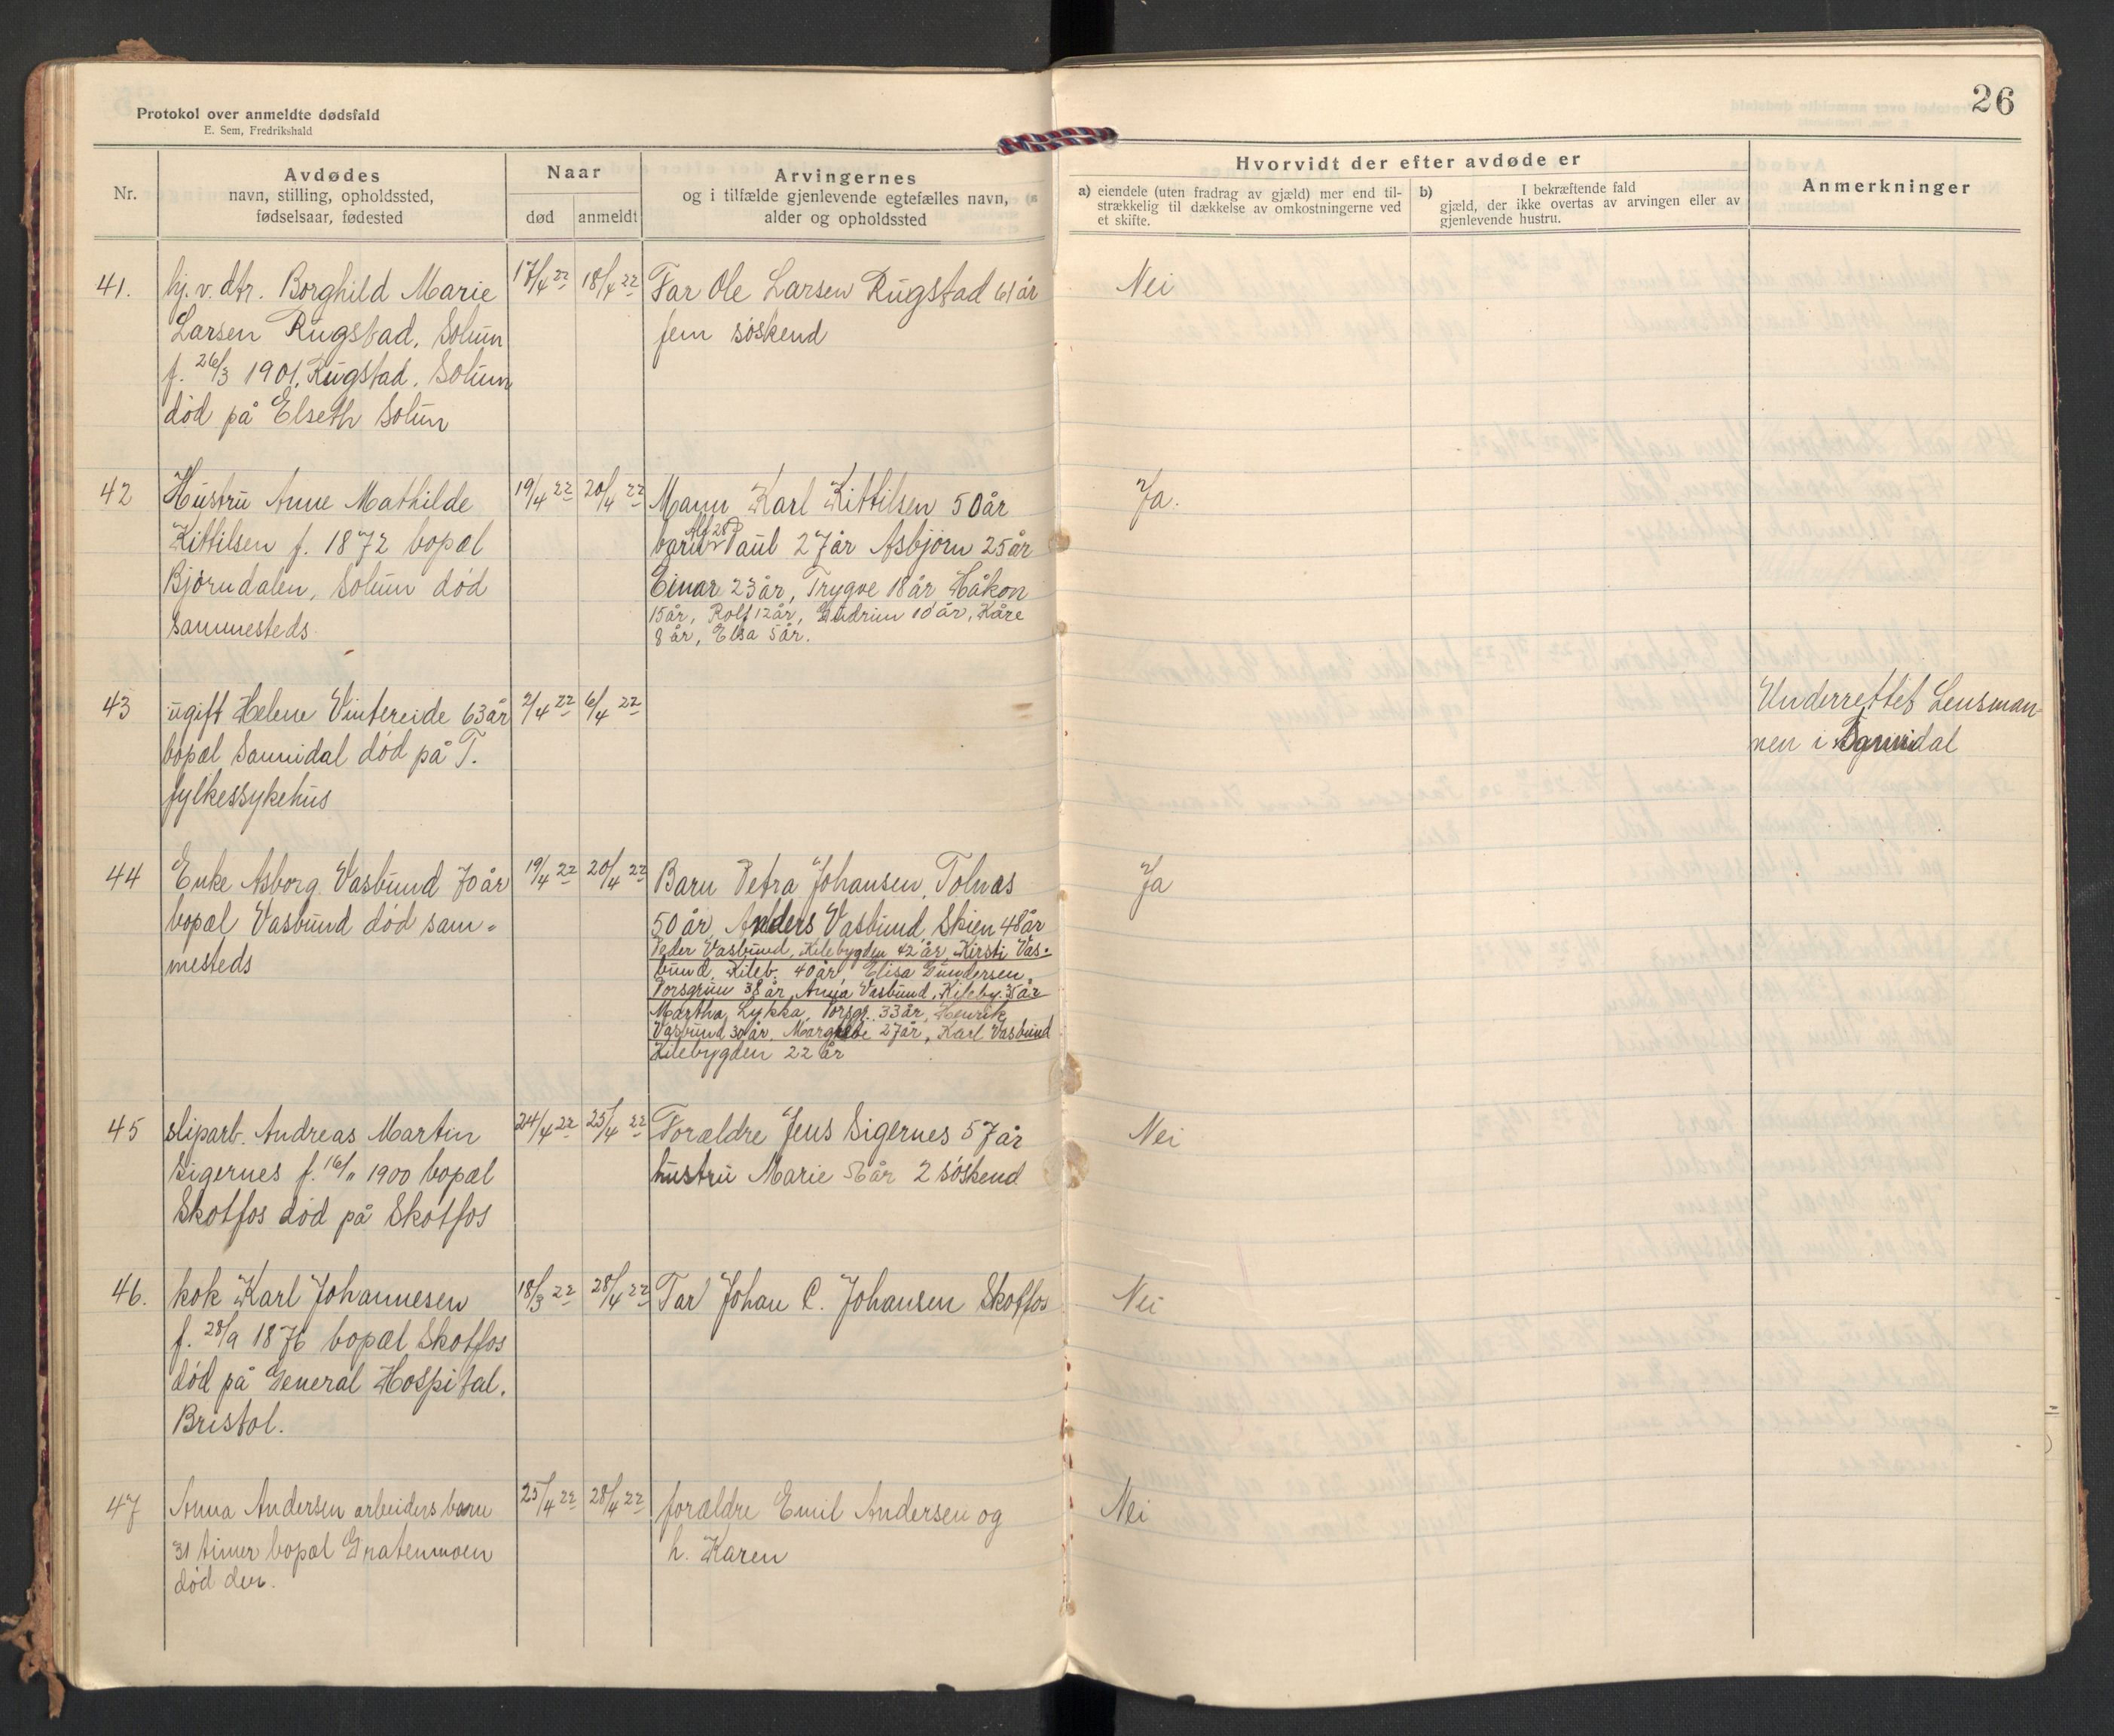 Protokol over anmeldte dødsfald
E. Sem, Fredrikshald
26
Nr.
Avdødes
navn, stilling, opholdssted,
fødselsaar, fødested
Naar
død
anmeldt
Arvingernes
og i tilfælde gjenlevende egtefælles navn,
alder og opholdssted
Hvorvidt der efter avdøde er
a) eiendele (uten fradrag av gjæld) mer end til-
strækkelig til dækkelse av omkostningerne ved
et skifte.
b) I bekræftende fald
gjæld, der ikke overtas av arvingen eller av
gjenlevende hustru.
Anmerkninger
41. hj. v. dtr. Borghild Marie 17/4 22 18/4 22 Far Ole Larsen Rugstad 61 år Nei
Larsen Rugstad, Solum fem søskend
f. 26/3 1901, Rugstad, Solum
død på Elseth Solum
42 Hustru Anne Mathilde 19/4 22 20/4 22 Mann Karl Kittilsen 50 år Ja.
Alf 28
Kittilsen f. 1872 bopæl barn Paul 27 år Asbjørn 25 år
Bjørndalen, Solum død Einar 23 år, Trygve 18 år Håkon
sammesteds 15 år, Rolf 12 år, Gudrun 10 år, Kåre
8 år, Elsa 5 år.
43 ugift Helene Vintereide 63 år 2/4 22 6/4 22 Underrettet Lensman-
bopæl Sannidal død på T. nen i Sannidal
fylkessykehus
44 Enke Asborg Vasbund 70 år 19/4 22 20/4 22 Barn Petra Johansen, Tolnæs Ja
bopæl Vasbund død sam- 50 år, Anders Vasbund, Skien 48 år
mesteds Peder Vasbund, Kilebygden 42 år, Kirsti Vas-
bund, Kileb. 40 år, Elisa Gundersen,
Porsgrun 38 år, Anna Vasbund, Kileby. 35 år
Martha Lykka, Porsgr. 33 år, Henrik
Vasbund 30 år, Margrethe 27 år, Karl Vasbund
Kilebygden 22 år
45 sliparb. Andreas Martin 24/4 22 25/4 22 Forældre Jens Sigernes 57 år Nei
Sigernes f. 16/11 1900 bopæl hustru Marie 56 år 2 søskend
Skotfos død på Skotfos
46. kok Karl Johannesen 18/3 22 28/4 22 Far Johan C. Johansen Skotfos Nei
f. 28/9 1876 bopæl Skotfos
død på General Hospital.
Bristol.
47 Anna Andersen arbeiders barn 25/4 22 28/4 22 forældre Emil Andersen og Nei
31 timer bopæl Gratenmoen h. Karen
død der.